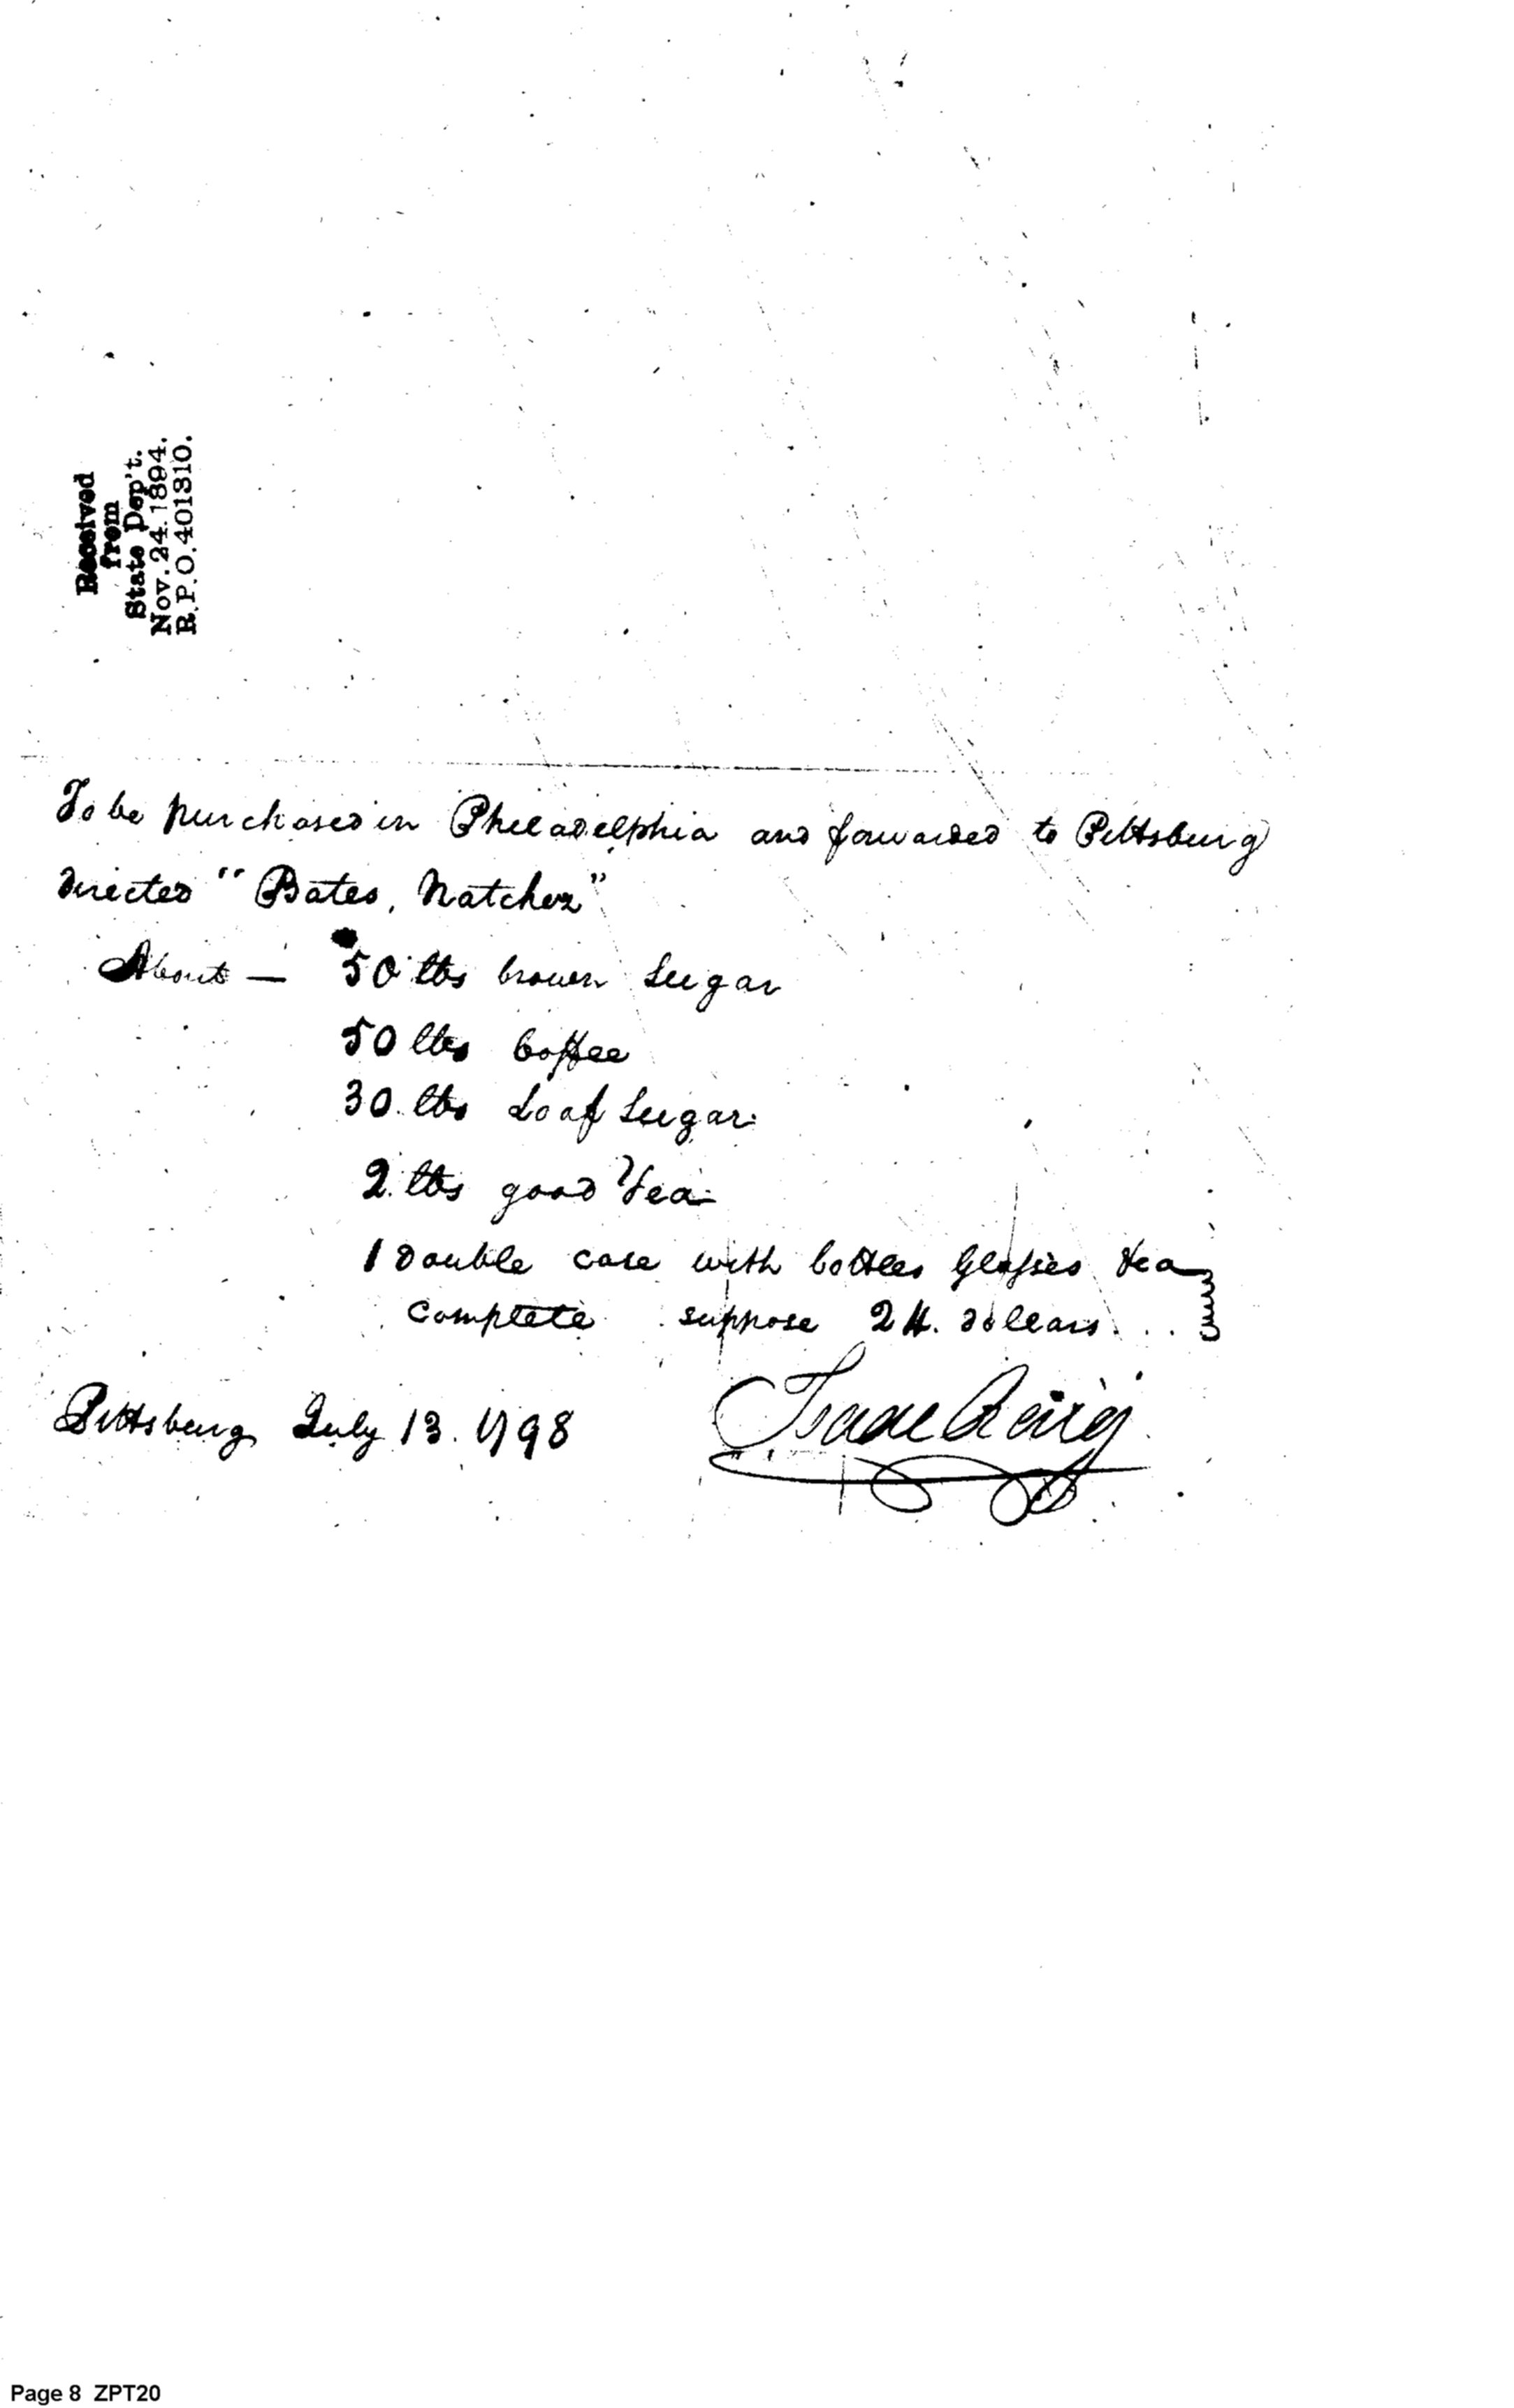 Received
from
State Dep't.
Nov. 24. 1894.
R.P.O. 401310.
To be purchased in Philadelphia and forwarded to Pittsburg
directed "Bates, Natchez"
About — 50 lbs brown Sugar
50 lbs Coffee
30 lbs Loaf Sugar
2 lbs good Tea
1 Double case with bottles Glasses &ca
complete suppose 24. dollars...
Pittsburg July 13. 1798
Page 8 ZPT20